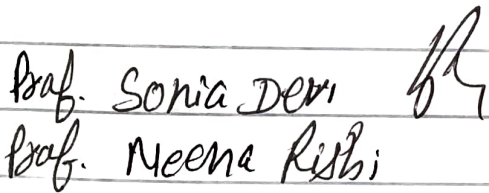 Prof. Sonia Devi
Prof. Meena Rishi